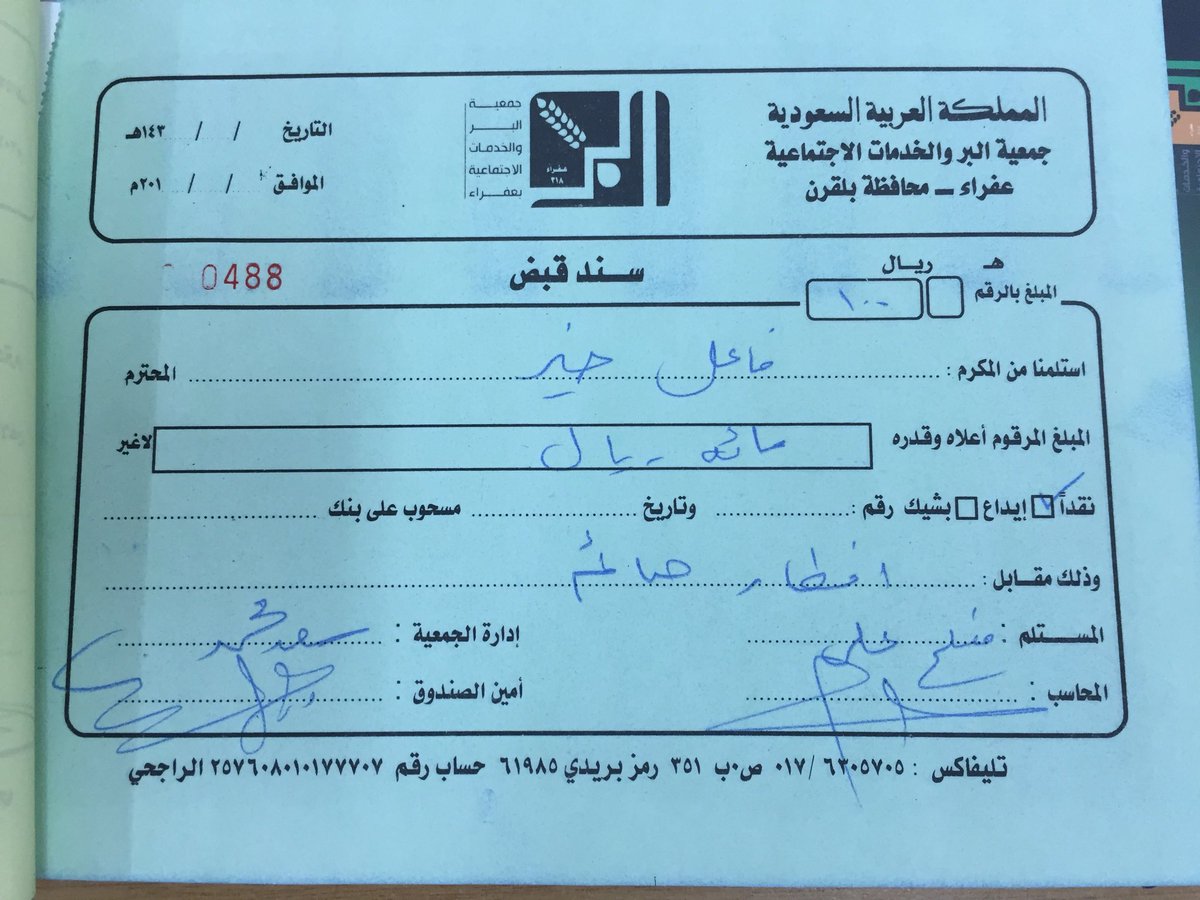 المملكة العربية السعودية
جمعية البر والخدمات الاجتماعية
عفراء – محافظة بلقرن
جمعية
البر
والخدمات
الاجتماعية
بعفراء
عفراء
٣١٨
التاريخ / / ١٤٣هـ
الموافق / / ٢٠١م
سند قبض
0488
هـ ريال
المبلغ بالرقم ١٠٠
استلمنا من المكرم : فاعل خير المحترم
المبلغ المرقوم أعلاه وقدره مائة ريال لاغير
نقداً إيداع بشيك رقم : وتاريخ مسحوب على بنك
وذلك مقابل : افطار صائم
المستلم : مفلح علي إدارة الجمعية : سعد محمد
المحاسب : أمين الصندوق :
تليفاكس : ٠١٧/ ٦٣٠٥٧٠٥ ص.ب ٣٥١ رمز بريدي ٦١٩٨٥ حساب رقم ٢٥٧٦٠٨٠١٠١٧٧٧٠٧ الراجحي